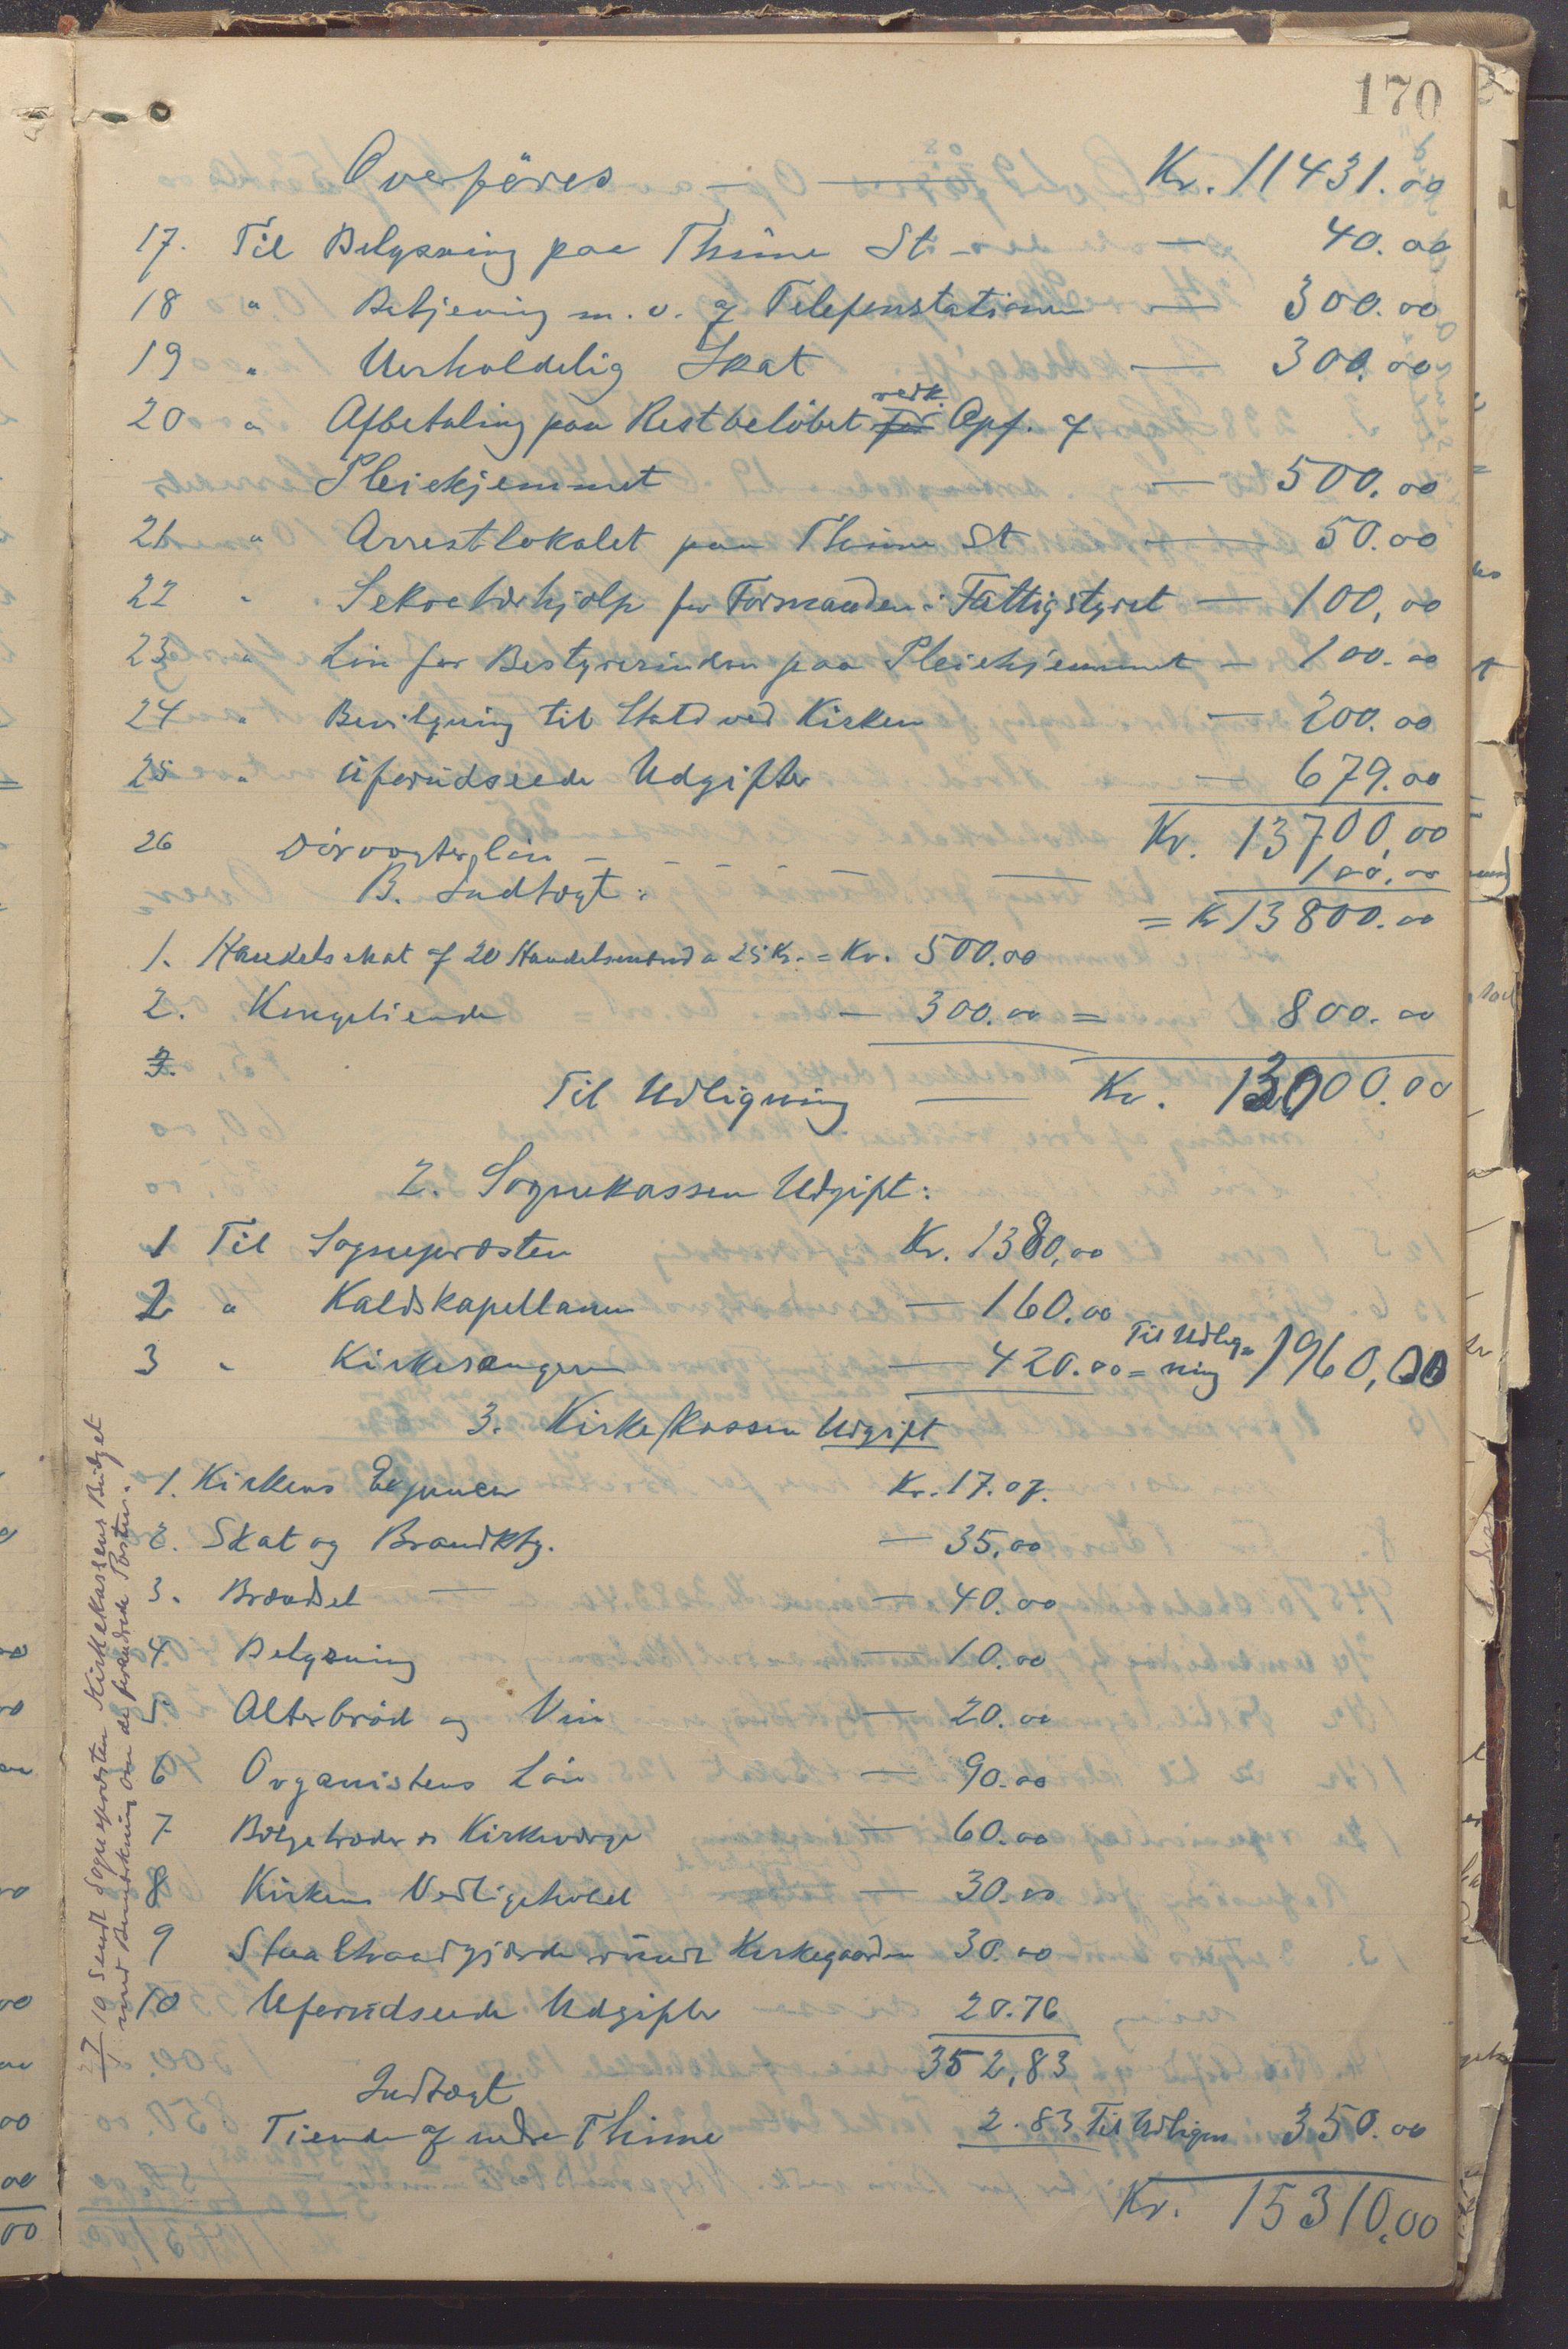 170
Overföres — Kr. 11431.00
17. Til Belysning paa Thime St — 40.00
18 " Betjening m. v. af Telefonstationen — 300.00
19 " Uerholdelig Skat — 300.00
20 " Afbetaling paa Restbelöbet for vedk. Opf. af
Pleiehjemmet — 500.00
21 " Arrestlokalet paa Thime St — 50.00
22 " Sekretærhjælp for Formanden i Fattigstyret — 100,00
23 " Lön for Bestyrerinden paa Pleiehjemmet — 100.00
24 " Bevilgning til Stald ved Kirken — 200.00
25 " Uforudseede Udgifter — 679.00
Kr. 13700,00
26 Dörvogterlön — 100,00
B. Indtægt: = Kr 13800.00
1. Handelsskat af 20 Handelsmænd a 25 Kr. = Kr. 500.00
2. Kongetiende — 300.00 = 800.00
3.
Til Udligning — Kr. 13000.00
2. Sognekassen Udgift:
1 Til Sognepræsten Kr. 1380,00
2 " Kaldskapellanen — 160.00
3 " Kirkesangeren — 420.00 = Til Udlig= ning 1960,00
3. Kirkekassen Udgift
1. Kirkens Kr. 17.07.
2. Skat og Brandktg. — 35,00
3. Brændsel — 40.00
4 Belysning — 10.00
5 Alterbröd og Vin — 20.00
6 Organistens Lön — 90.00
7 Bælgetræder og Kirkeværge — 60.00
8 Kirkens Vedligehold — 30.00
9 Staaltraadgjærde rundt Kirkegaarden 30.00
10 Uforudseede Udgifter 20.76
352,83
Indtægt
Tiende af nedre Thime 2.83 Til Udlignn 350.00
Kr. 15310,00
27/10 Sendt Sognepresten Kirkekassens Budget
med Bemærkning om de forandrede Poster.